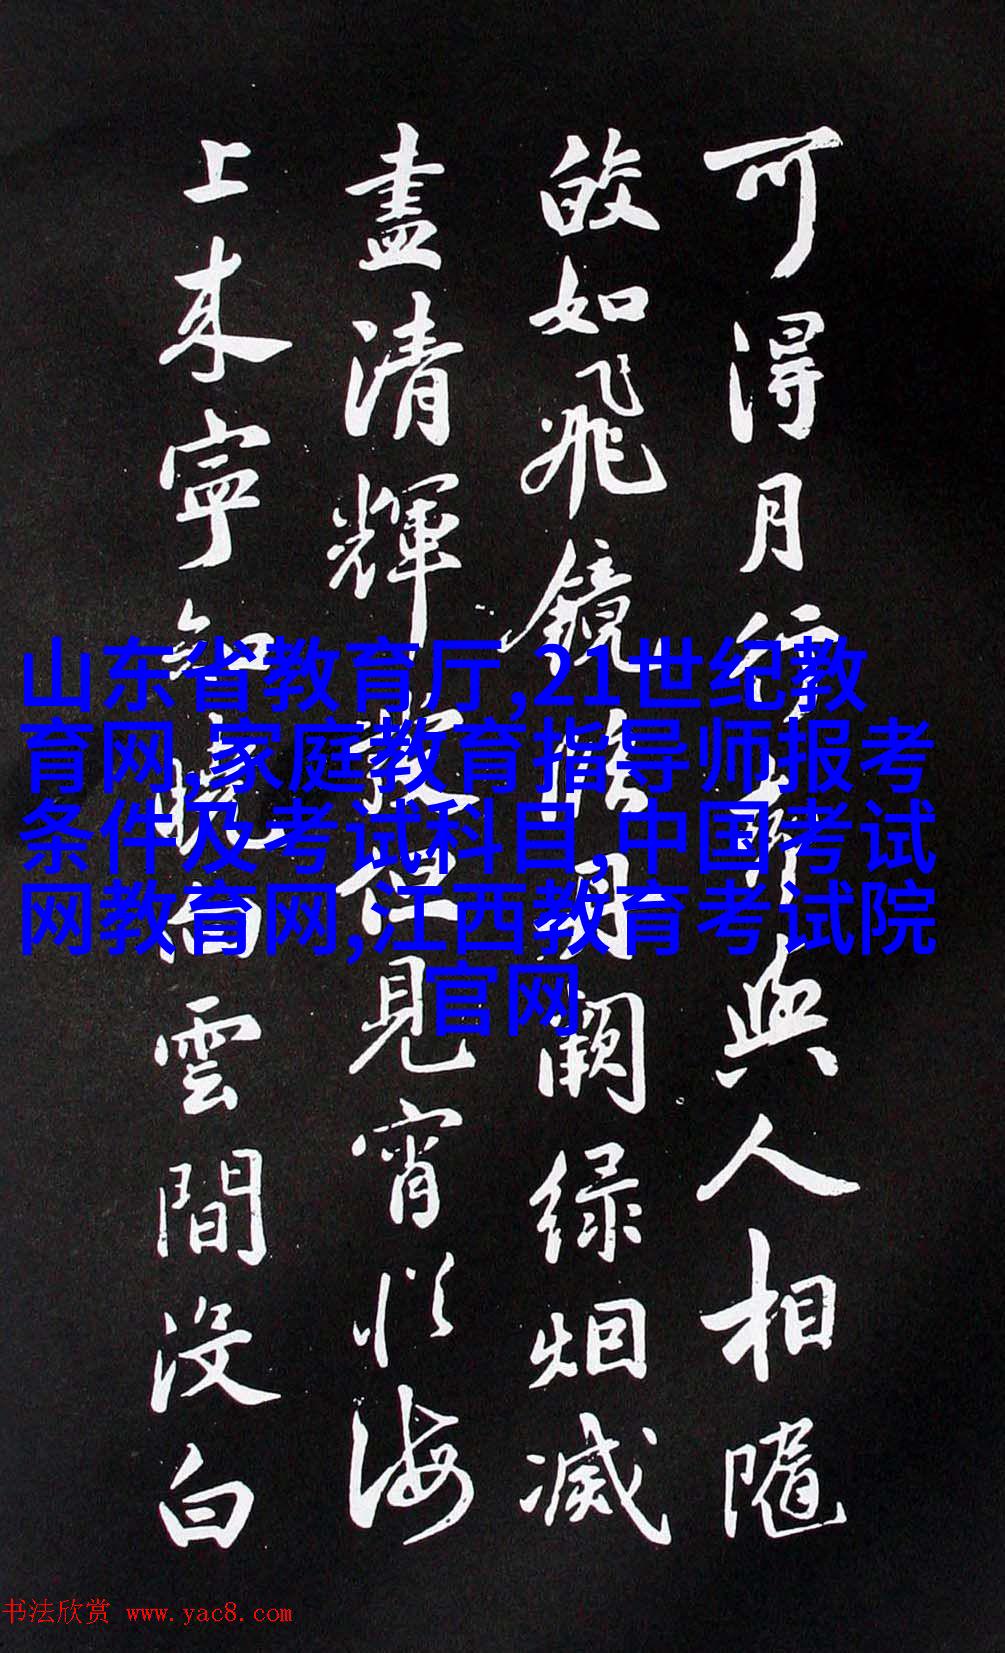 可得月行却與人相隨
皎如飛鏡臨丹闕緑烟滅
盡清輝發但見宵從海
上来寧知曉向雲間没白
山东省教育厅,21世纪教
育网,家庭教育指导师报考
条件及考试科目,中国考试
网教育网,江西教育考试院
官网
书法欣赏 www.yac8.com